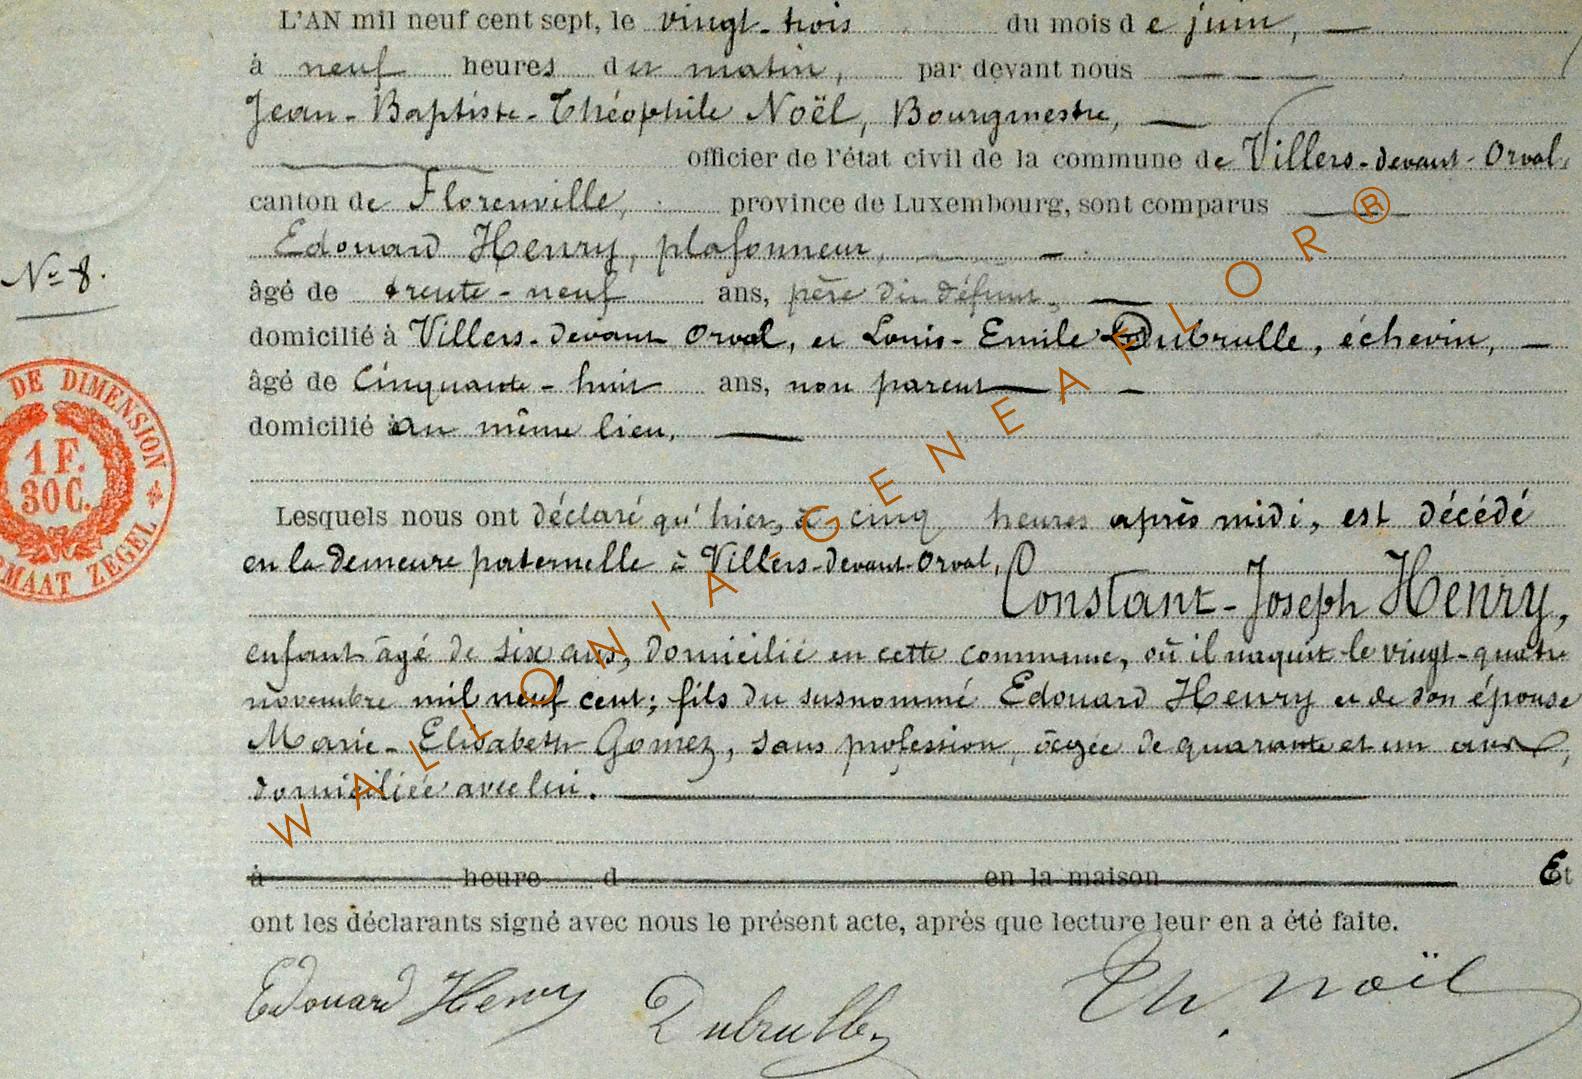 L'AN mil neuf cent sept, le vingt-trois du mois de juin,
à neuf heures du matin, par devant nous
Jean-Baptiste-Théophile Noël, Bourgmestre,
officier de l'état civil de la commune de Villers-devant-Orval,
canton de Florenville, province de Luxembourg, sont comparus
Edouard Henry, plafonneur,
N° 8.
âgé de trente-neuf ans, père du défunt,
domicilié à Villers-devant Orval, et Louis-Emile Dubrulle, échevin,
âgé de Cinquante-huit ans, non parent
domicilié au même lieu,
DE DIMENSION
1 F.
30 C.
MAAT ZEGEL
Lesquels nous ont déclaré qu'hier, à cinq heures après midi, est décédé
en la demeure paternelle à Villers-devant-Orval,
Constant-Joseph Henry,
enfant âgé de six ans, domicilié en cette commune, où il naquit le vingt-quatre
novembre mil neuf cent; fils du susnommé Edouard Henry et de son épouse
Marie-Elisabeth Gomez, sans profession, âgée de quarante et un ans,
domiciliée avec lui.
à heure d en la maison Et
ont les déclarants signé avec nous le présent acte, après que lecture leur en a été faite.
Edouard Henry Dubrulle Th. Noël
WALLONIA-GENEAFLOR®